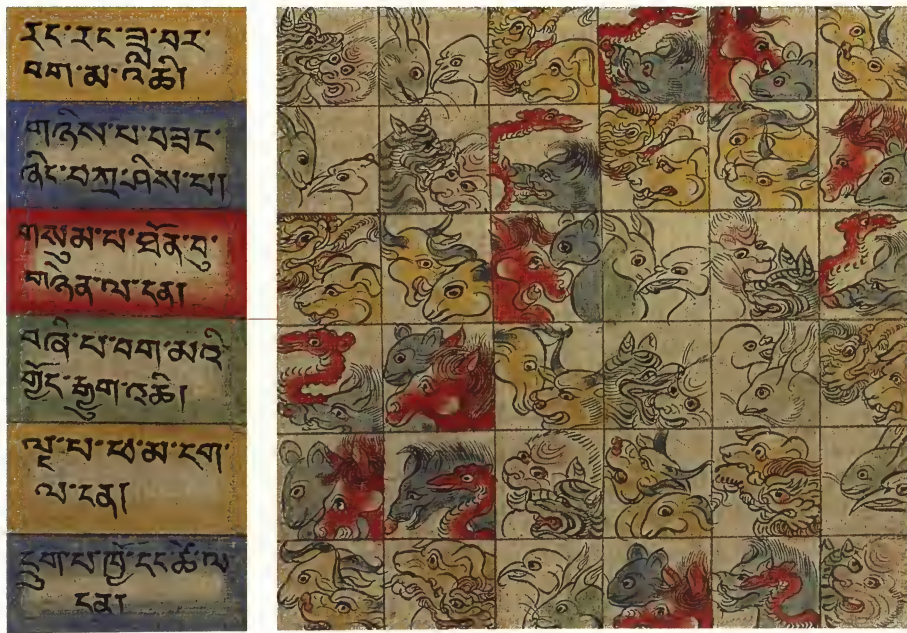 རང་རང་ཟླ་བར་
བག་མ་འཆི།
གཉིས་པ་བཟང་
ཞིང་བཀྲ་ཤིས་པ།
གསུམ་པ་ཐོན་བུ་
གཉེན་ལ་ངན།
བཞི་པ་བག་མའི་
གྱོད་རྒྱུག་འཆི།
ལྔ་པ་ཕ་མ་དག་
ལ་ངན།
དྲུག་པ་ཁྱོ་དང་ཚེ་ལ་
ངན།